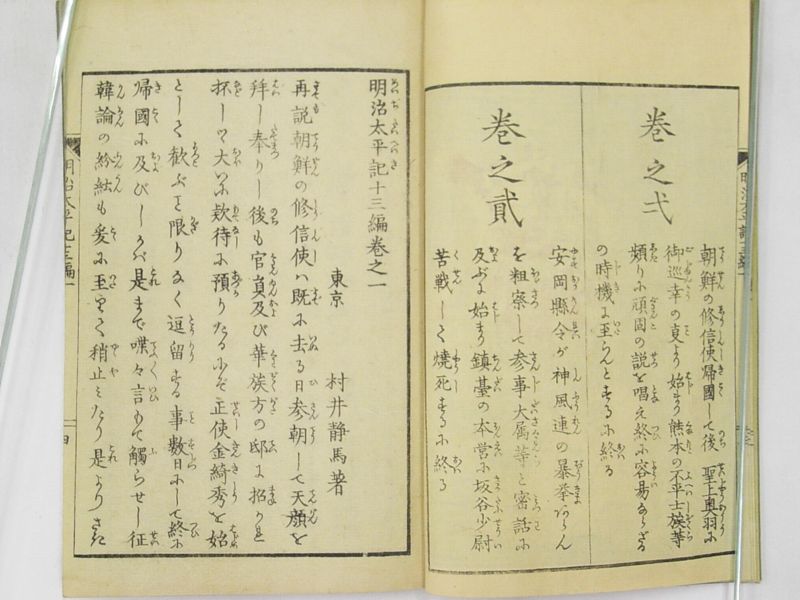 巻之弌
朝鮮の修信使帰國して後 聖上奥羽に
御巡幸の夏より始まり熊本の不平士族等
頻りに頑固の説を唱え終に容易ならざる
の時機に至らんとするに終る
巻之貳
安岡縣令が神風連の暴挙あらん
を粗察して参事大属等と密話に
及ぶに始まり鎮臺の本営に坂谷少尉
苦戦して焼死するに終る
明治太平記十三編巻之一
東京 村井静馬著
再説朝鮮の修信使は既に去る日参朝して天顔を
拜し奉りし後も官員及び華族方の邸に招かれ
抔して大いに欵待に預りたるにぞ正使金綺秀を始
として歓ぶを限りなく逗留する事数日にして終に
帰國に及びしかば是まで喋々言もて觸らせし征
韓論の紛紜も爰に至りて稍止みたり是より
明治太平記十三編一
四